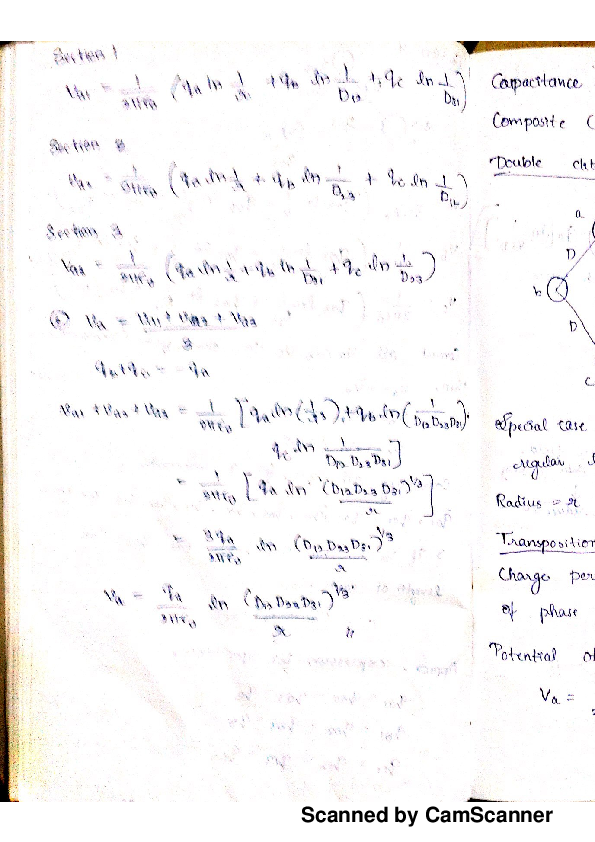 Section 1
Va1 = 1/2πε0 (qa ln 1/r + qb ln 1/D12 + qc ln 1/D31)
Section 2
Va2 = 1/2πε0 (qa ln 1/r + qb ln 1/D23 + qc ln 1/D12)
Section 3
Va3 = 1/2πε0 (qa ln 1/r + qb ln 1/D31 + qc ln 1/D23)
Va = Va1 + Va2 + Va3 / 3
qb + qc = - qa
Va1 + Va2 + Va3 = 1/2πε0 [qa ln (1/r3) + qb ln (1/D12 D23 D31).
qc ln 1/D12 D23 D31]
= 1/2πε0 [qa ln (D12 D23 D31)1/3 / r]
= 3qa/2πε0 ln (D12 D23 D31)1/3 / r
Va = qa/2πε0 ln (D12 D23 D31)1/3 / r
Capacitance
Composite (
Double
a
D
b
D
c
Special case
regular
Radius = r
Transposition
Charge per
of phase
Potential of
Va =
Scanned by CamScanner